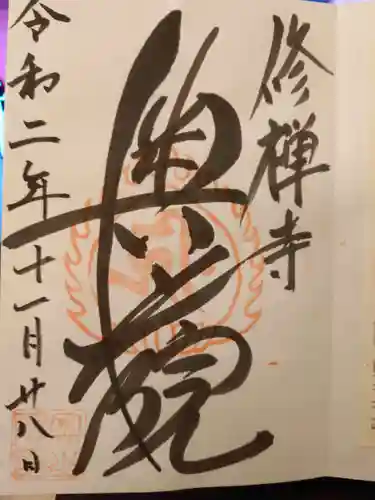 修禅寺
奥之院
令和二年十一月廿八日